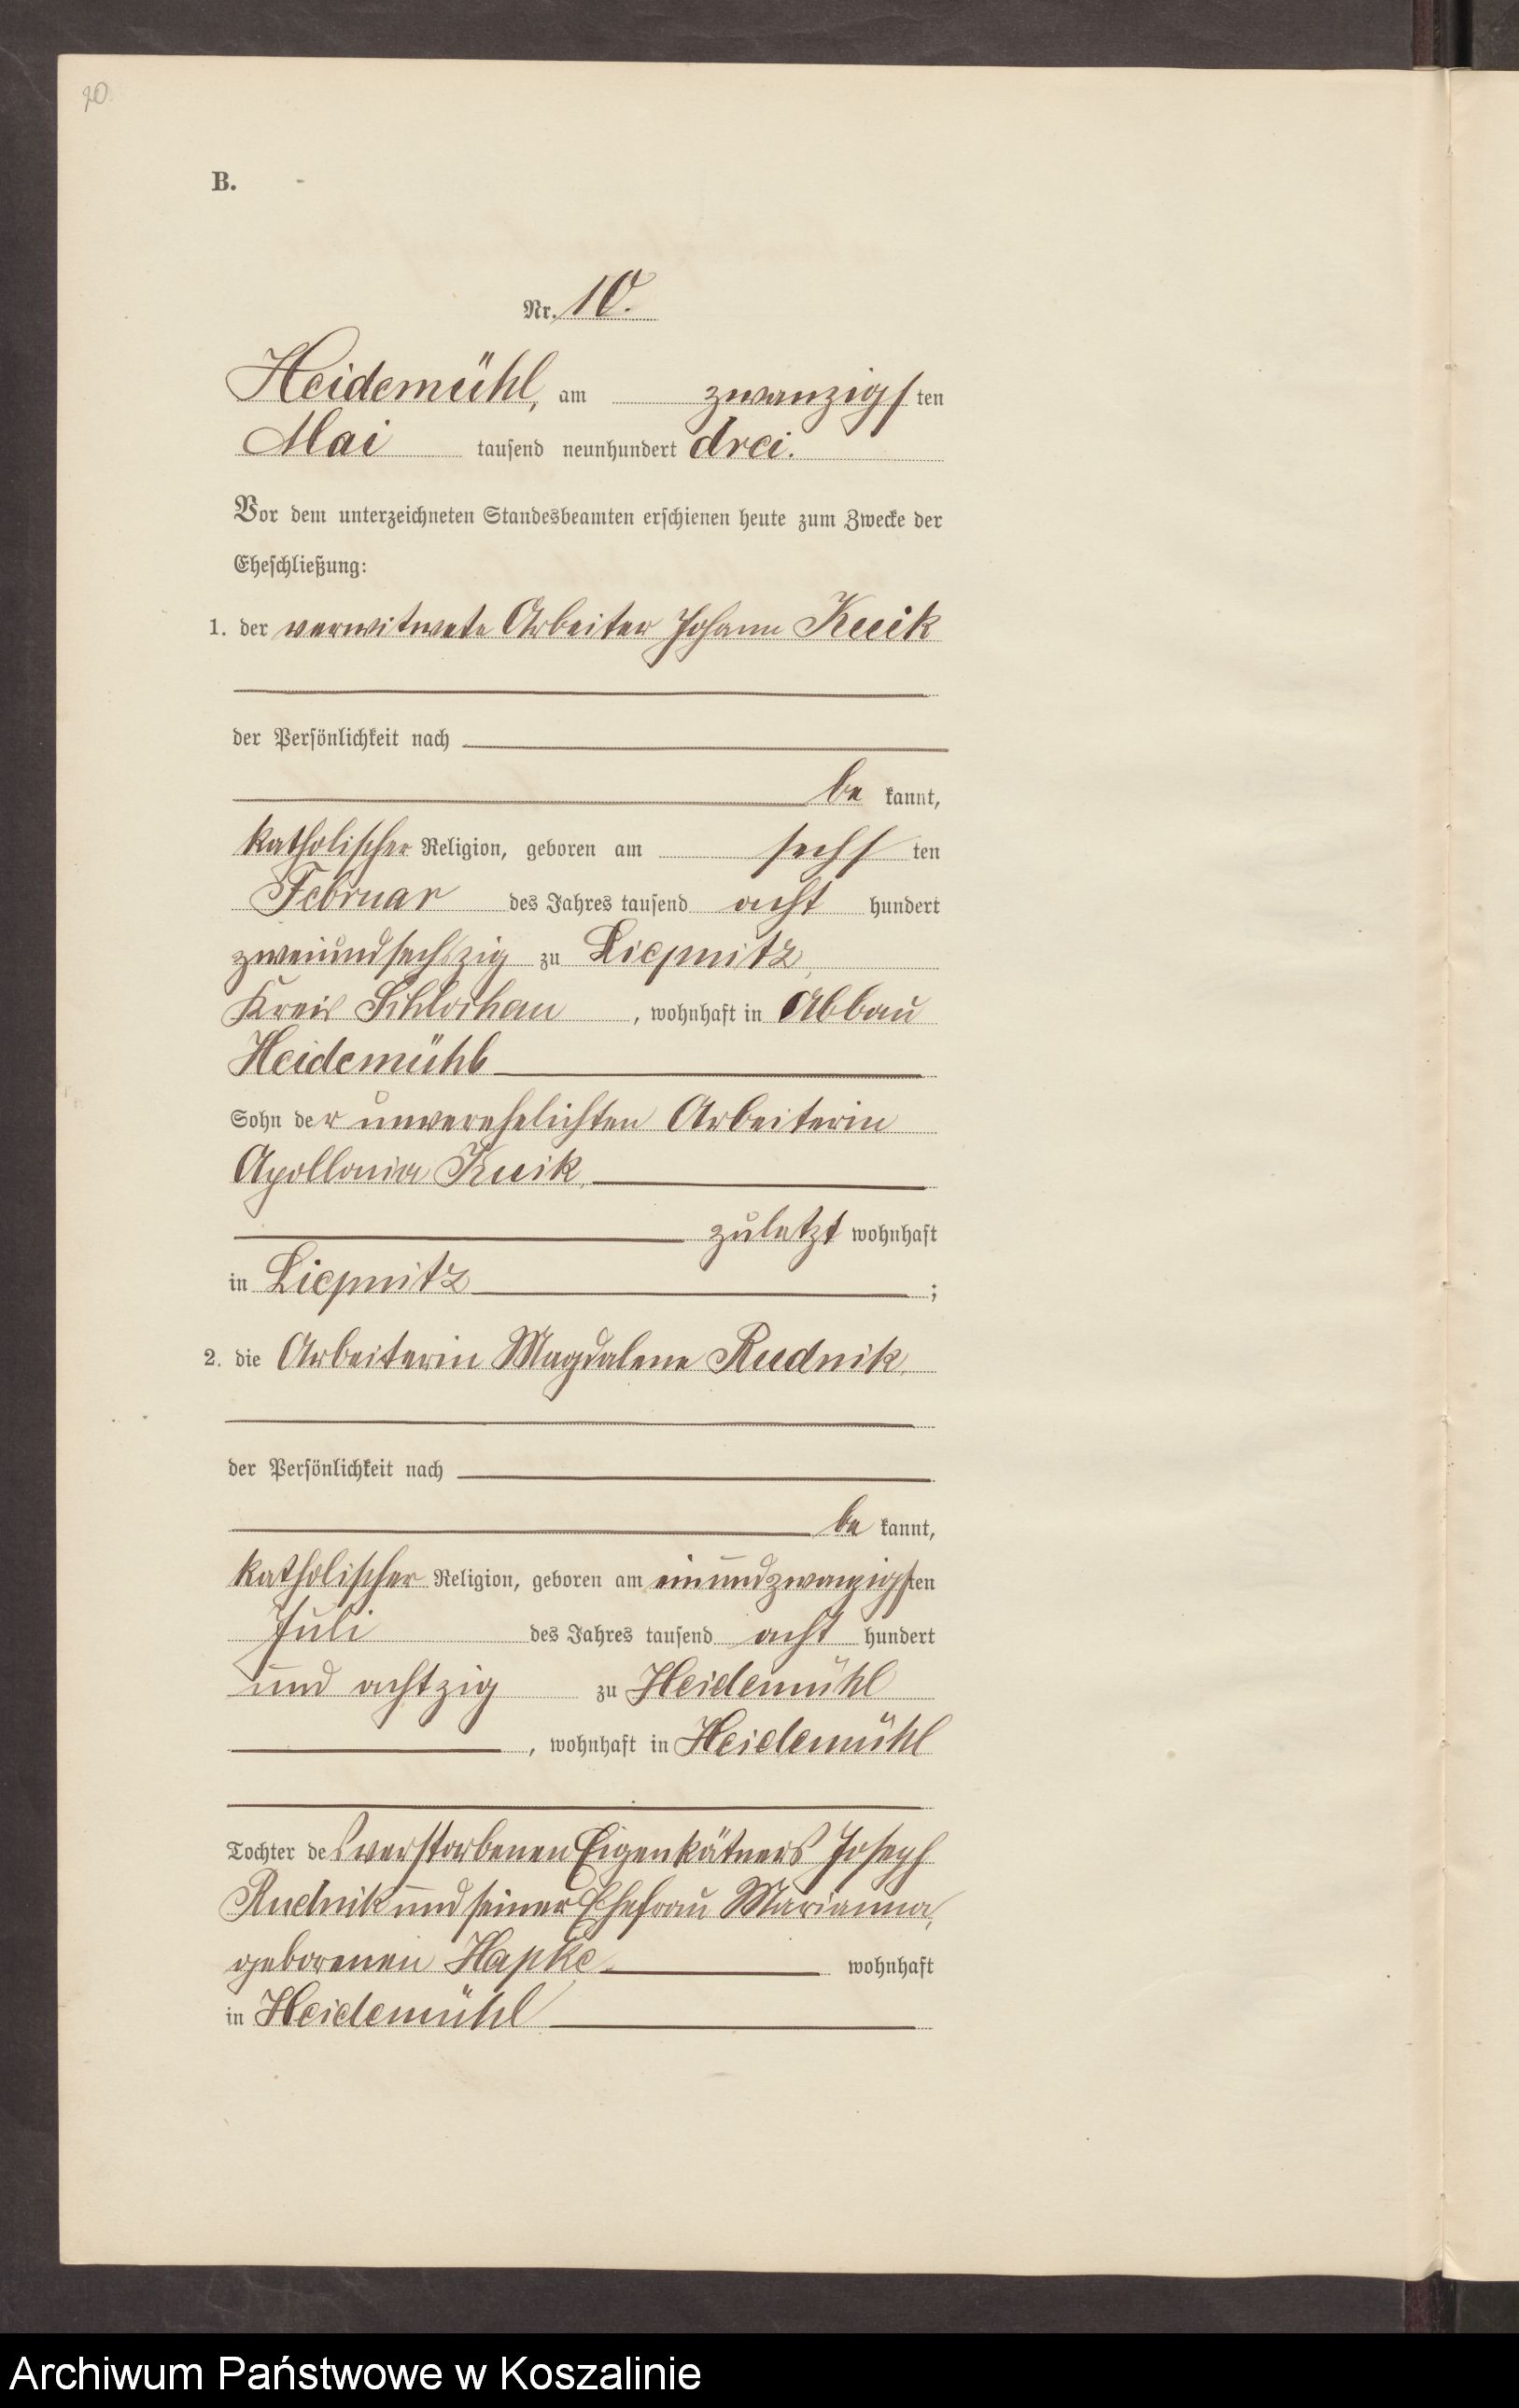 20
B.
Nr. 10.
Heidemühl, am zwanzigsten
Mai tausend neunhundert drei.
Vor dem unterzeichneten Standesbeamten erschienen heute zum Zwecke der
Eheschließung:
1. der verwitwete Arbeiter Johann Kuik
der Persönlichkeit nach
be kannt,
katholischer Religion, geboren am sechs ten
Februar des Jahres tausend acht hundert
zweiundsechszig zu Liepnitz,
Kreis Schlochau, wohnhaft in Abbau
Heidemühl
Sohn der unverehelichten Arbeiterin
Apollonia Kuik,
zuletzt wohnhaft
in Liepnitz ;
2. die Arbeiterin Magdalene Rudnik,
der Persönlichkeit nach
be kannt,
katholischer Religion, geboren am einundzwanzigsten
Juli des Jahres tausend acht hundert
und achtzig zu Heidemühl
, wohnhaft in Heidemühl
Tochter des verstorbenen Eigenkätners Joseph
Rudnik und seiner Ehefrau Marianna,
geborenen Hapke, wohnhaft
in Heidemühl
Archiwum Państwowe w Koszalinie